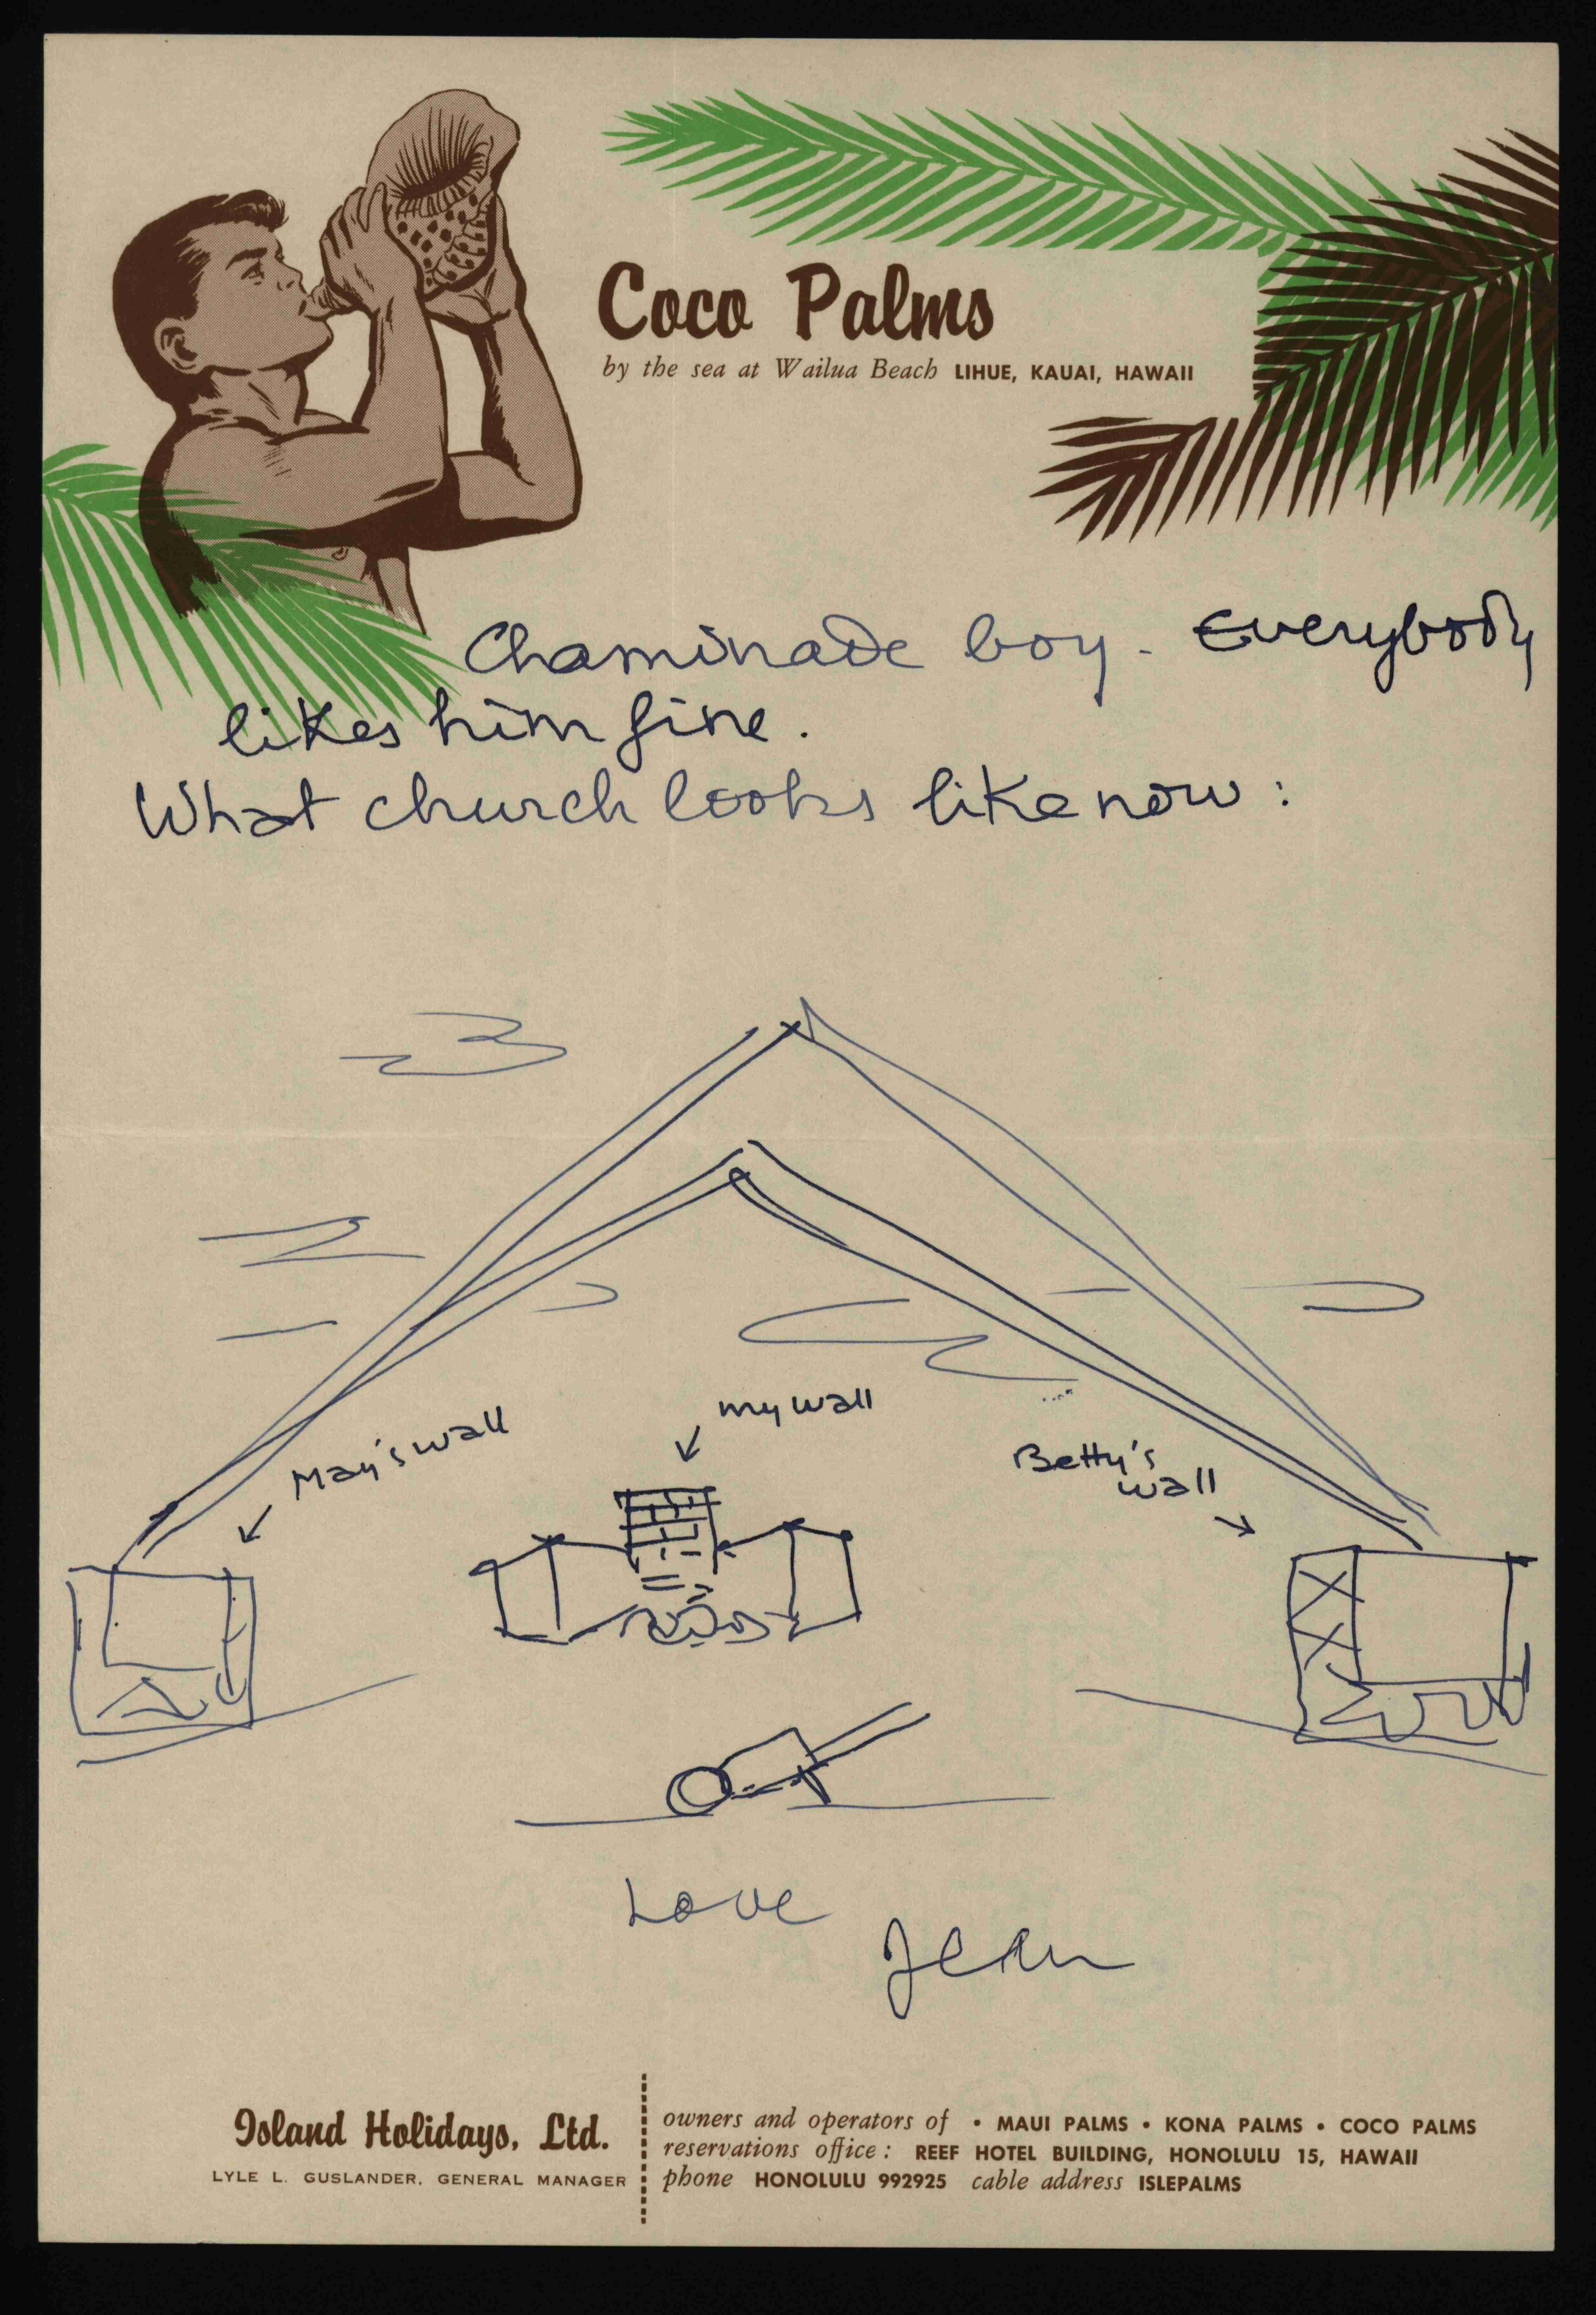 Coco Palms
by the sea at Wailua Beach LIHUE, KAUAI, HAWAII
Chaminade boy - Everybody
likes him fine.
What church looks like now:
May's wall
my wall
Betty's
wall
Love
Jean
Island Holidays, Ltd.
LYLE L. GUSLANDER, GENERAL MANAGER
owners and operators of • MAUI PALMS • KONA PALMS • COCO PALMS
reservations office: REEF HOTEL BUILDING, HONOLULU 15, HAWAII
phone HONOLULU 992925 cable address ISLEPALMS